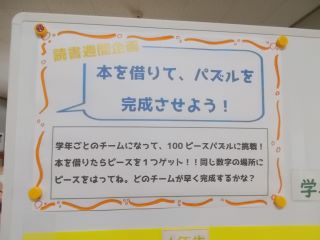 読書週間企画
本を借りて、パズルを
完成させよう！
学年ごとのチームになって、100ピースパズルに挑戦！
本を借りたらピースを1つゲット！！同じ数字の場所に
ピースをはってね。どのチームが早く完成するかな？
学